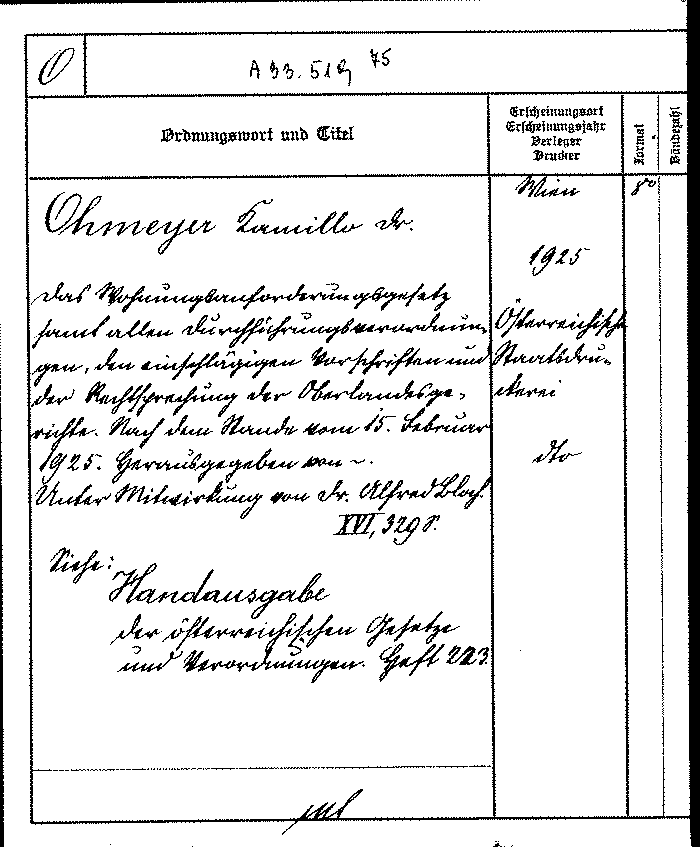 O
A 33.519 75
Ordnungswort und Titel
Erscheinungsort
Erscheinungsjahr
Verleger
Drucker
Format
Bändezahl
Ohmeyer Kamillo Dr.
Das Wohnungsanforderungsgesetz
samt allen Durchführungsverordnun-
gen, den einschlägigen Vorschriften und
der Rechtsprechung der Oberlandesge-
richte. Nach dem Stande vom 15. Februar
1925. Herausgegeben von ~.
Unter Mitwirkung von Dr. Alfred Bloch.
XVI, 329 S.
Siehe:
Handausgabe
der österreichischen Gesetze
und Verordnungen. Heft 223.
Wien
1925
Österreichische
Staatsdru-
ckerei
dto
8°